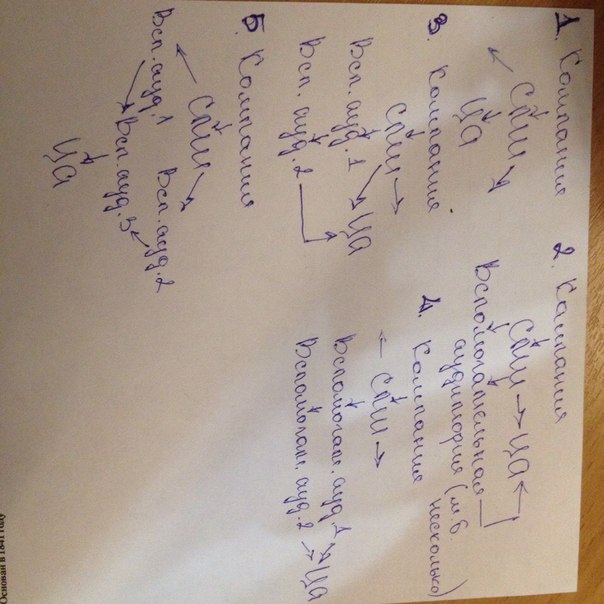 1. Компания
СПШ
ЦА
2. Компания
СПШ → ЦА
Вспомогательная
аудитория (м.б.
несколько)
3. Компания
СПШ
Всп. ауд. 1
ЦА
Всп. ауд. 2
4. Компания
СПШ
Вспомогат. ауд. 1
ЦА
Вспомогат. ауд. 2
5. Компания
СПШ
Всп. ауд. 1
Всп. ауд. 2
Всп. ауд. 3
ЦА
Основан в 1841 году